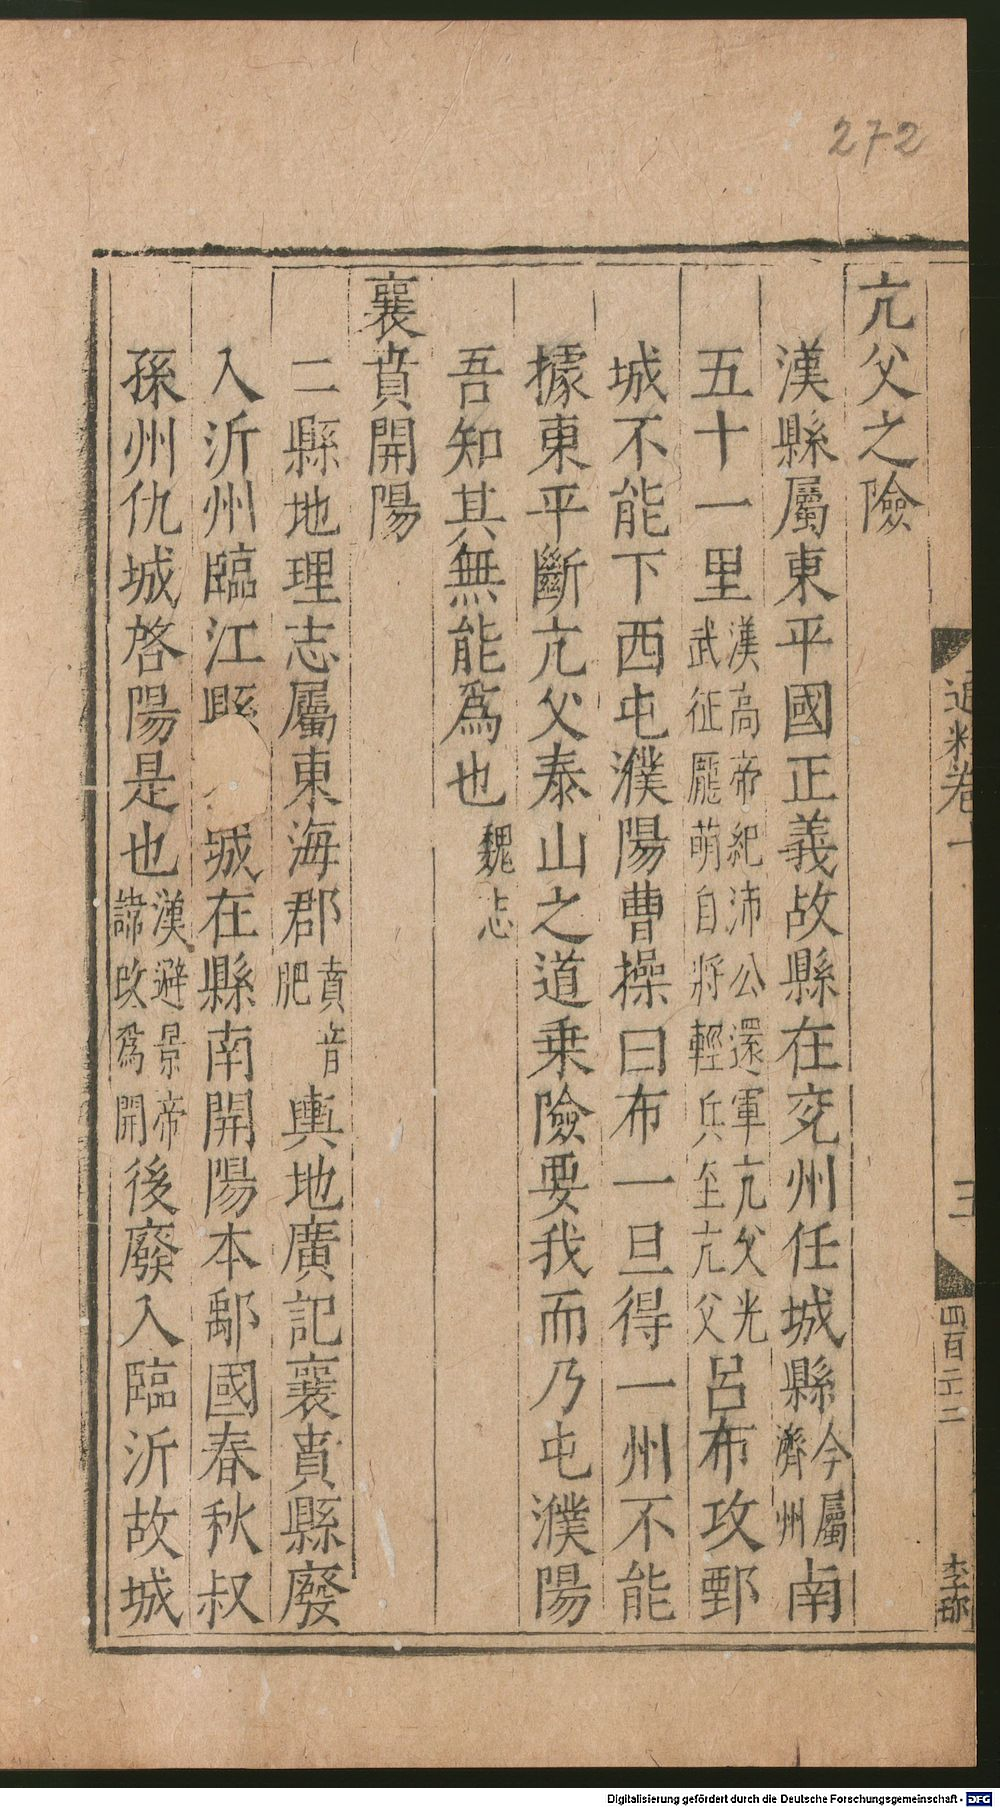 272
通釋卷十
三
四百二十二
李耶
亢父之險
漢縣屬東平國正義故縣在兗州任城縣今屬濟州南
五十一里漢高帝紀沛公還軍亢父光武征龐萌自將輕兵至亢父呂布攻鄄
城不能下西屯濮陽曹操曰布一旦得一州不能
據東平斷亢父泰山之道乗險要我而乃屯濮陽
吾知其無能爲也魏志
襄賁開陽
二縣地理志屬東海郡賁音肥輿地廣記襄賁縣廢
入沂州臨江縣 城在縣南開陽本鄅國春秋叔
孫州仇城啓陽是也漢避景帝諱改爲開後廢入臨沂故城
Digitalisierung gefördert durch die Deutsche Forschungsgemeinschaft - DFG